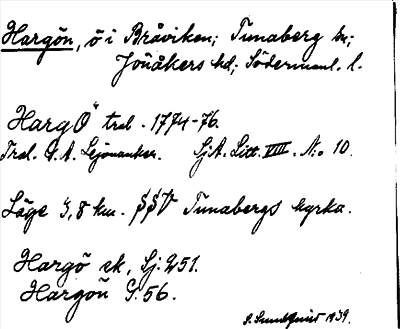 Hargön, ö i Bråviken; Tunaberg sn;
Jönåkers hd; Södermanl. l.
"Hargö" trol. 1774-76.
Trol. G. A. Lejonanker. Sj.A. Litt. VIII. No 10.
Läge 3,8 km. SSV Tunabergs kyrka.
Hargö ek, Sj. 251.
Hargön G. 56.
S. Sundquist 1939.